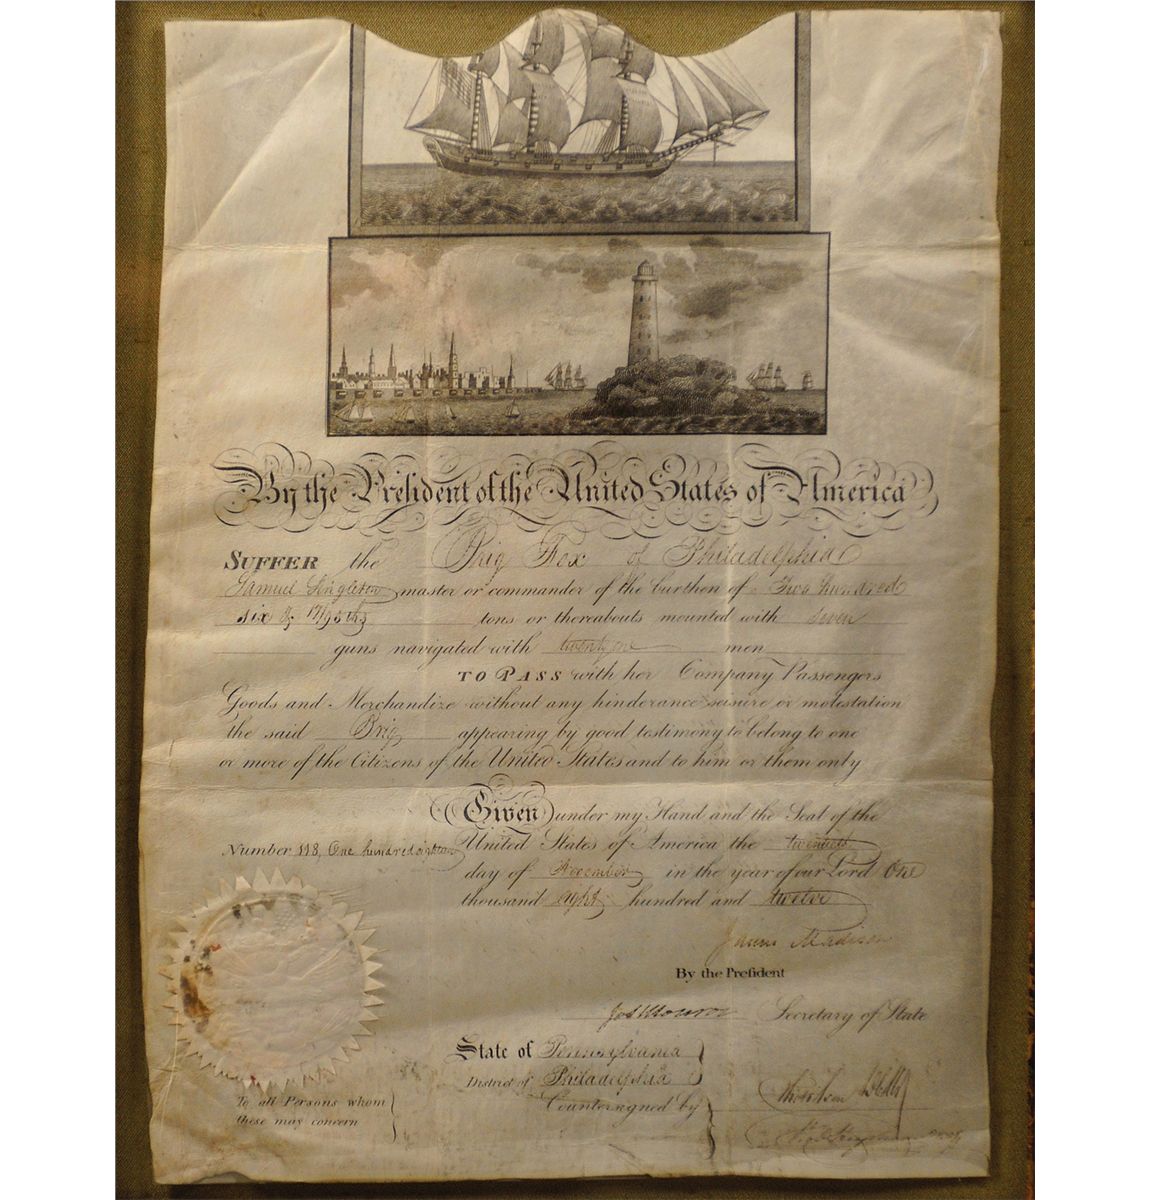 By the President of the United States of America
SUFFER the Brig Fox of Philadelphia
Samuel Singleton master or commander of the burthen of Two hundred
six & 17/95ths tons or thereabouts mounted with seven
guns navigated with twenty one men
TO PASS with her Company Passengers
Goods and Merchandize without any hinderance seisure or molestation
the said Brig appearing by good testimony to belong to one
or more of the Citizens of the United States and to him or them only
Given under my Hand and the Seal of the
United States of America the twentieth
day of November in the year of our Lord One
thousand eight hundred and twelve
Number 118, One hundred eighteen
James Madison
By the President
Jas Monroe Secretary of State
State of Pennsylvania
District of Philadelphia
Countersigned by
To all Persons whom
these may concern